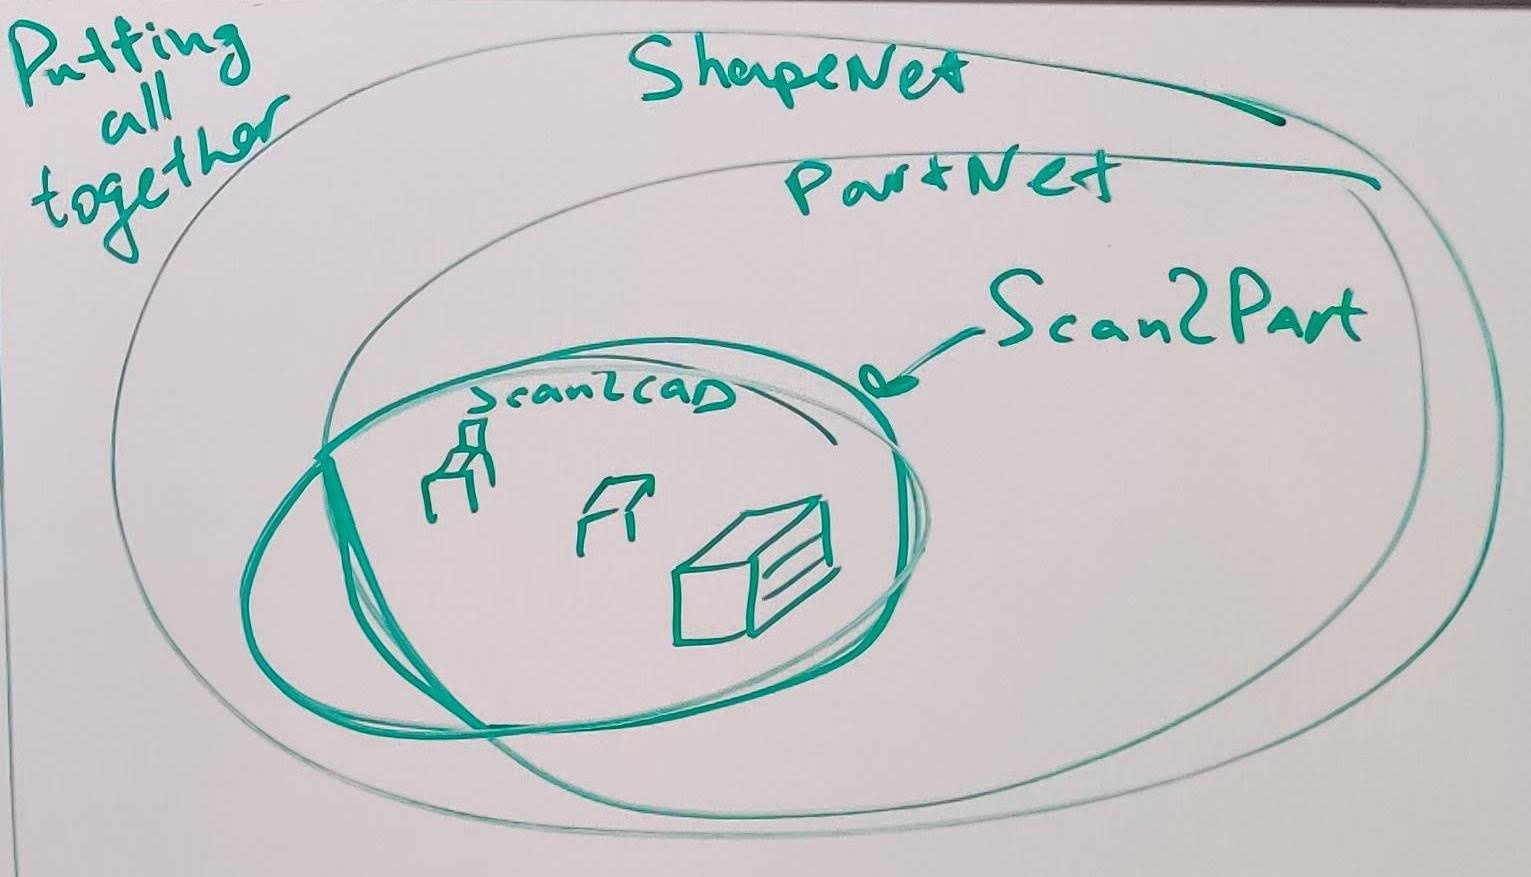 Putting
all
together
ShapeNet
PartNet
Scan2Part
Scan2CAD